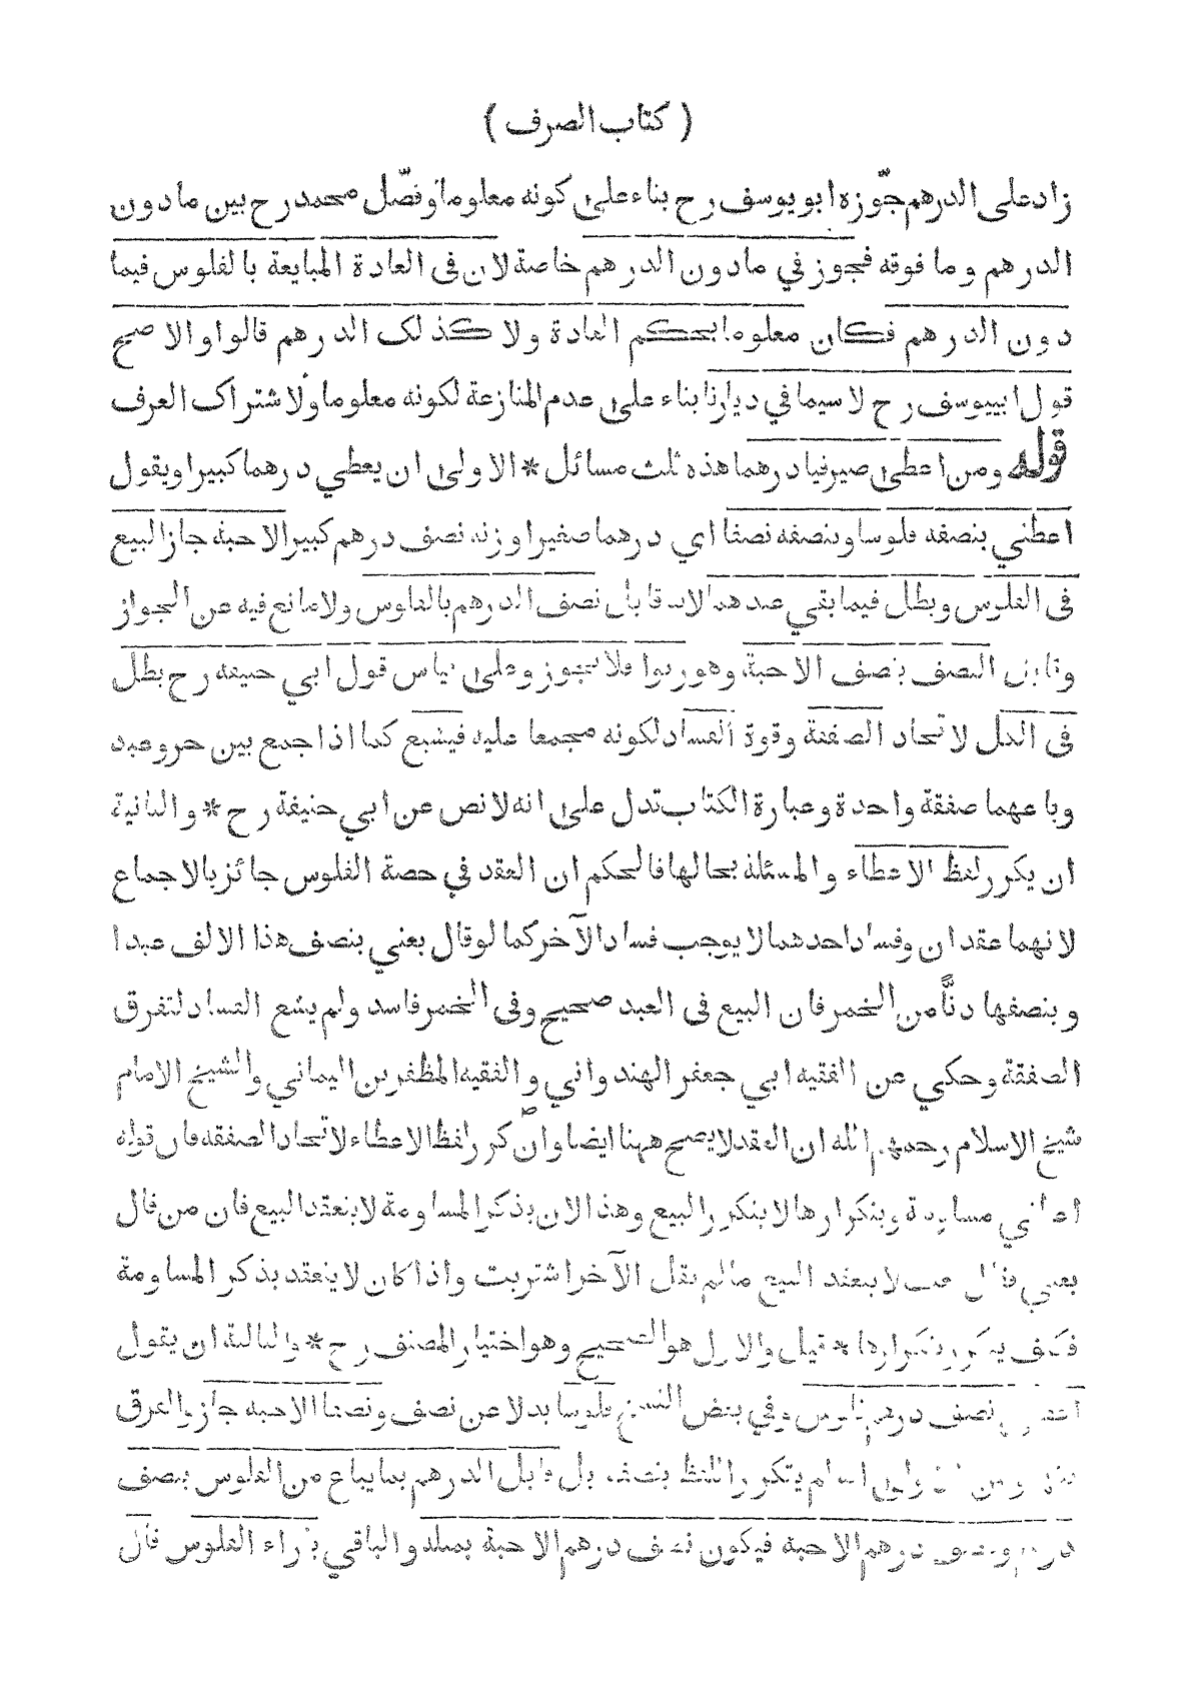 ( كتاب الصرف )
زاد على الدرهم جوّزه ابو يوسف رح بناء على كونه معلوما وفصّل محمد رح بين ما دون
الدرهم وما فوقه فيجوز في مادون الدرهم خاصة لان فى العادة المبايعة بالفلوس فيما
دون الدرهم فكان معلوما بحكم العادة ولا كذلك الدرهم قالوا والاصح
قول ابييوسف رح لا سيما في ديارنا بناء على عدم المنازعة لكونه معلوما ولاشتراك العرف
قوله ومن اعطى صيرفيا درهما هذه ثلث مسائل * الاولى ان يعطي درهما كبيرا ويقول
اعطني بنصفه فلوسا وبنصفه نصفا اي درهما صغيرا وزنه نصف درهم كبير الا حبة جاز البيع
فى الفلوس وبطل فيما بقي عندهما لانه قابل نصف الدرهم بالفلوس ولا مانع فيه عن الجواز
وقابل النصف بنصف الا حبة وهو ربوا فلا يجوز وعلى قياس قول ابي حنيفة رح بطل
فى الكل لاتحاد الصفقة وقوة الفساد لكونه مجمعا عليه فيشيع كما اذا جمع بين حر وعبد
وباعهما صفقة واحدة وعبارة الكتاب تدل على انه لا نص عن ابي حنيفة رح * والثانية
ان يكرر لفظ الاعطاء والمسئلة بحالها فالحكم ان العقد في حصة الفلوس جائز بالاجماع
لانهما عقدان وفساد احدهما لا يوجب فساد الآخر كما لو قال بعني بنصف هذا الالف عبدا
وبنصفها دنّاً من الخمر فان البيع فى العبد صحيح وفى الخمر فاسد ولم يشع الفساد لتفرق
الصفقة وحكي عن الفقيه ابي جعفر الهندواني والفقيه المظفر بن اليماني والشيخ الامام
شيخ الاسلام رحمهم الله ان العقد لا يصح ههنا ايضا وان كرر لفظ الاعطاء لاتحاد الصفقة فان قوله
اعطني مساومة وبتكرارها لا يتكرر البيع وهذا لان بذكر المساومة لا ينعقد البيع فان من قال
بعني فقال بعت لا ينعقد البيع مالم يقل الآخر اشتريت واذا كان لا ينعقد بذكر المساومة
فكيف يتكرر بتكرارها * قيل والاول هو الصحيح وهو اختيار المصنف رح * والثالثة ان يقول
اعطني نصف درهم فلوس وفي بعض النسخ فلوسا بدلا عن نصف ونصفا الا حبة جاز والفرق
بينه وبين الاولى انه لم يتكرر اللفظ بنصفه بل قابل الدرهم بما يباع من الفلوس بنصف
درهم وبنصف درهم الا حبة فيكون نصف درهم الا حبة بمثله والباقي بازاء الفلوس قال